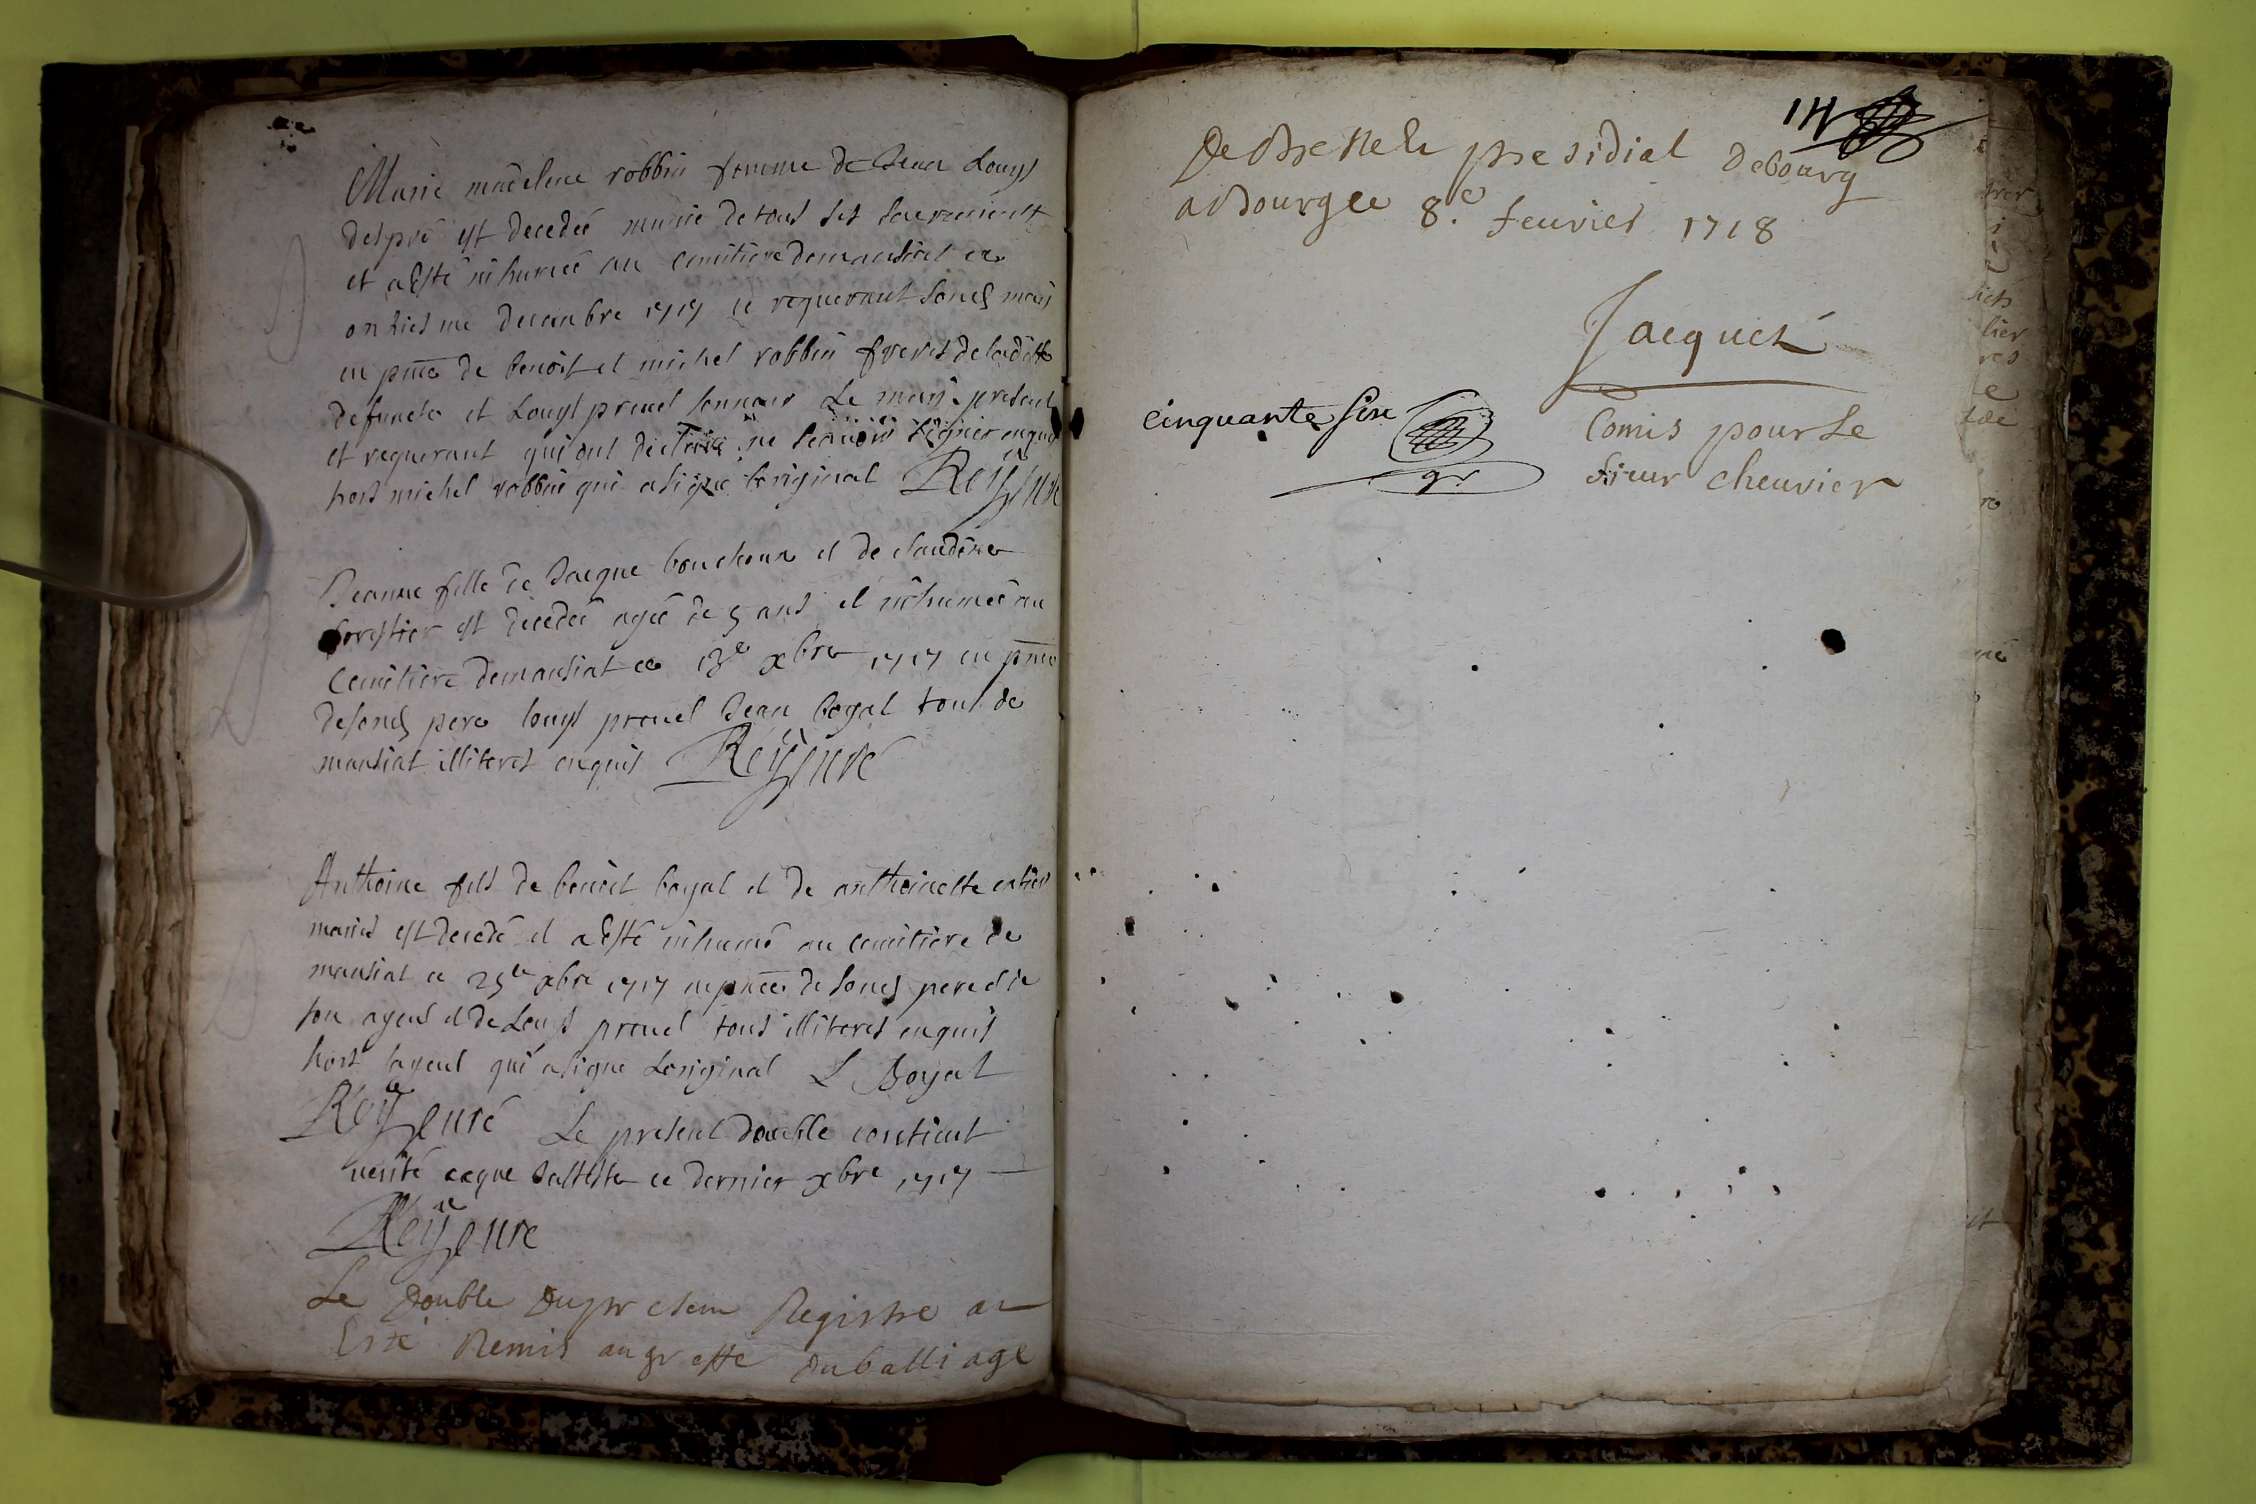 Marie madelene robbin femme de Jean Louys
Despré est decedée munie de tous ses sacrements
et a Esté inhumée au cemitiere demansiat ce
onziesme decembre 1717 ce requerant sond mari
en pnce de benoist et michel robbin freres de laditte
defuncte et Louys pruel Le mari present
et requerant qui ont ne sçavoir signer enquis
hors michel robbin qui a signé loriginal Rey curé
Jeanne fille de Jacque bouchoux et de claudine
forestier est decedée agée de 5 ans et inhumée au
cemitiere demansiat ce 13e xbre 1717 en pnce
desond pere louys pruel Jean boyat tous de
mansiat illiteres enquis Rey curé
Anthoine fils de benoit boyat et de anthoinette
mariés est decedé et a Esté inhumé au cemitiere de
mansiat ce 25e xbre 1717 en pnce de sond pere et de
son ayeul et de Louys pruel tous illiteres enquis
hors layeul qui a signé Loriginal L Boyat
Rey curé Le present double contient
verité ce que Jatteste ce dernier xbre 1717
Rey curé
Le Double Du present Registre a
Esté Remis au greffe du balliage
114
De Bresse & presidial Debourg
a Bourg ce 8.e feuvrier 1718
Jacquet
cinquante six
Comis pour Le
sieur cheuvier